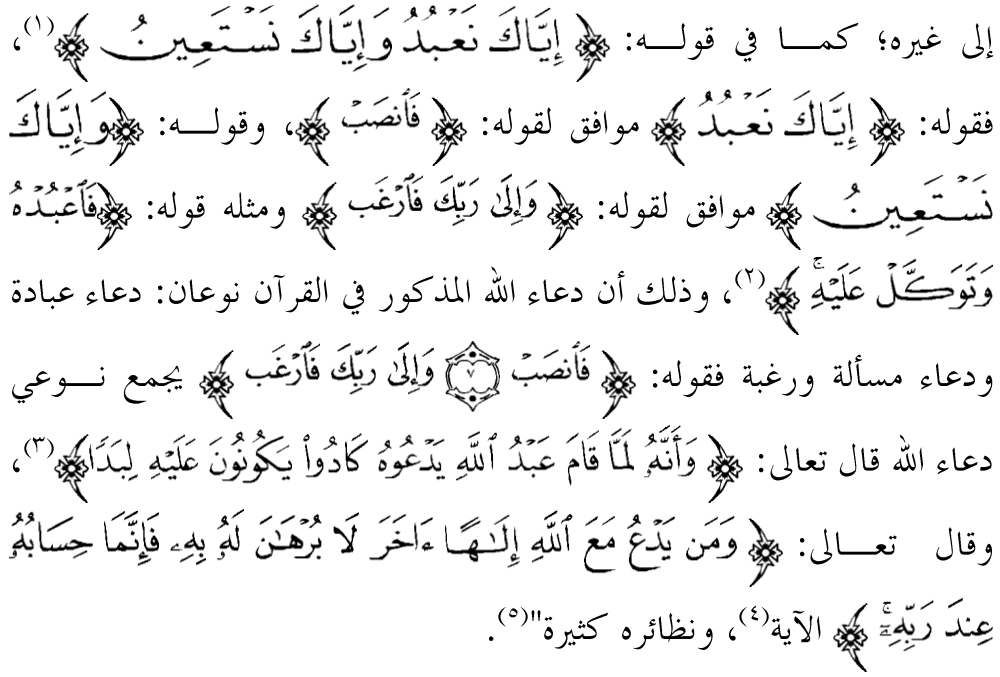 إلى غيره؛ كمـــا في قولـــه: ﴿ إِيَّاكَ نَعْبُدُ وَإِيَّاكَ نَسْتَعِينُ ﴾(١)،
فقوله: ﴿ إِيَّاكَ نَعْبُدُ ﴾ موافق لقوله: ﴿ فَٱنصَبْ ﴾، وقولـــه: ﴿وَإِيَّاكَ
نَسْتَعِينُ ﴾ موافق لقوله: ﴿ وَإِلَىٰ رَبِّكَ فَٱرْغَب ﴾ ومثله قوله: ﴿فَٱعْبُدْهُ
وَتَوَكَّلْ عَلَيْهِ ۚ ﴾(٢)، وذلك أن دعاء الله المذكور في القرآن نوعان: دعاء عبادة
ودعاء مسألة ورغبة فقوله: ﴿ فَٱنصَبْ ٧ وَإِلَىٰ رَبِّكَ فَٱرْغَب ﴾ يجمع نـــوعي
دعاء الله قال تعالى: ﴿ وَأَنَّهُۥ لَمَّا قَامَ عَبْدُ ٱللَّهِ يَدْعُوهُ كَادُوا۟ يَكُونُونَ عَلَيْهِ لِبَدًا﴾(٣)،
وقال تعـــالى: ﴿ وَمَن يَدْعُ مَعَ ٱللَّهِ إِلَـٰهًا ءَاخَرَ لَا بُرْهَـٰنَ لَهُۥ بِهِۦ فَإِنَّمَا حِسَابُهُۥ
عِندَ رَبِّهِۦٓ ۚ ﴾ الآية(٤)، ونظائره كثيرة"(٥).